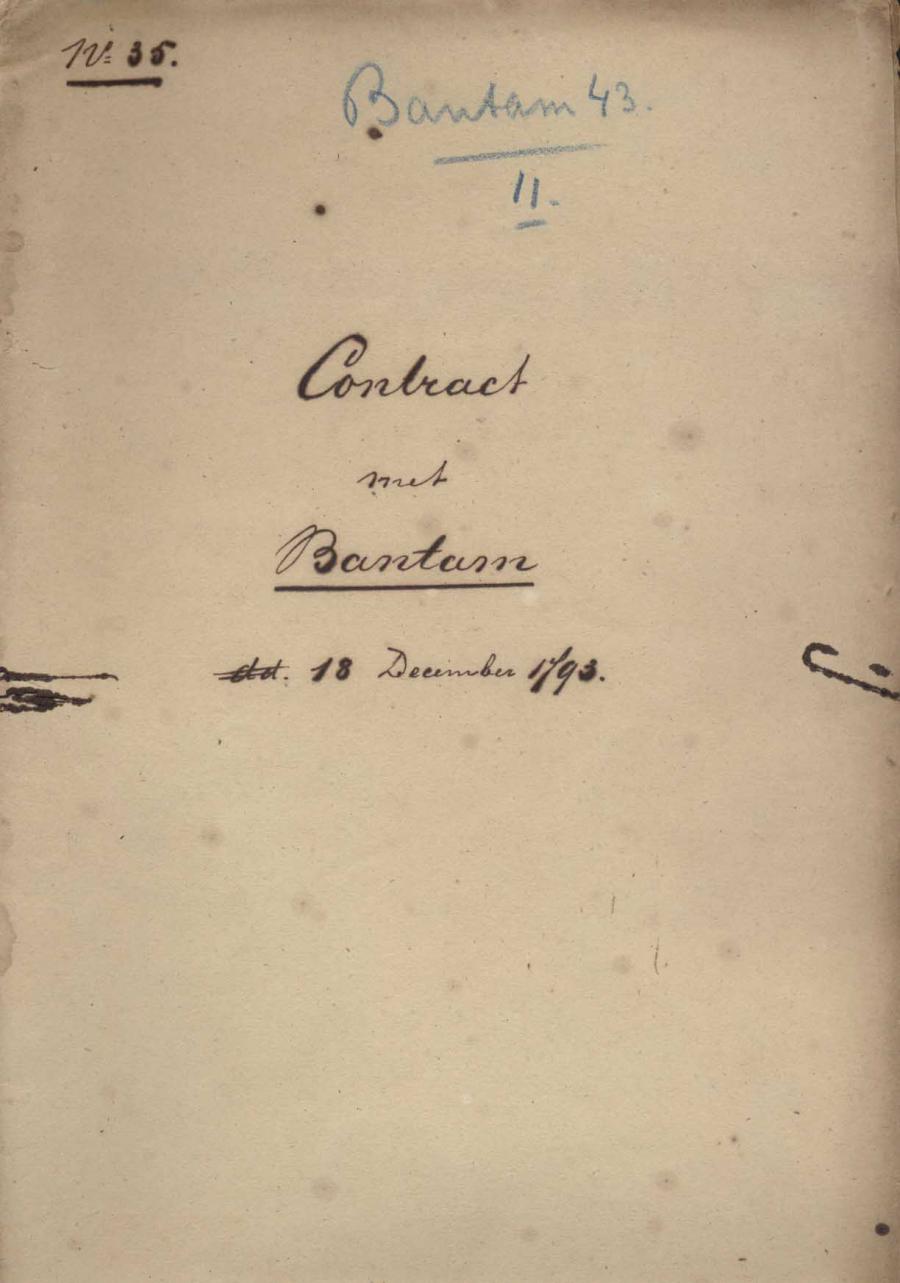 Nº 35.
Bantam 43.
II.
Contract
met
Bantam
dd. 18 December 1793.